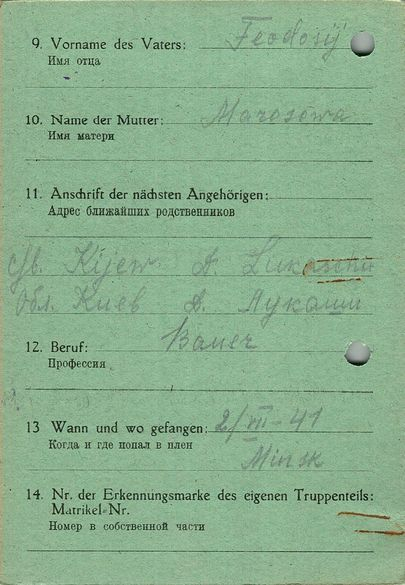 9. Vorname des Vaters: Feodosij
Имя отца
10. Name der Mutter: Marosowa
Имя матери
11. Anschrift der nächsten Angehörigen:
Адрес ближайших родственников
Kijew. d. Lukaschi
Обл. Киев д. Лукаши
12. Beruf: Bauer
Профессия
13 Wann und wo gefangen: 2/VII-41
Когда и где попал в плен
Minsk
14. Nr. der Erkennungsmarke des eigenen Truppenteils:
Matrikel-Nr.
Номер в собственной части